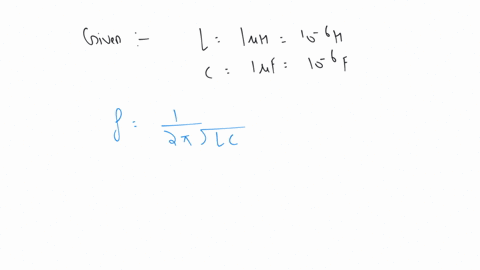 Given :- L = 1μH = 10⁻⁶H
C = 1μF = 10⁻⁶F
f = 1/2π√LC